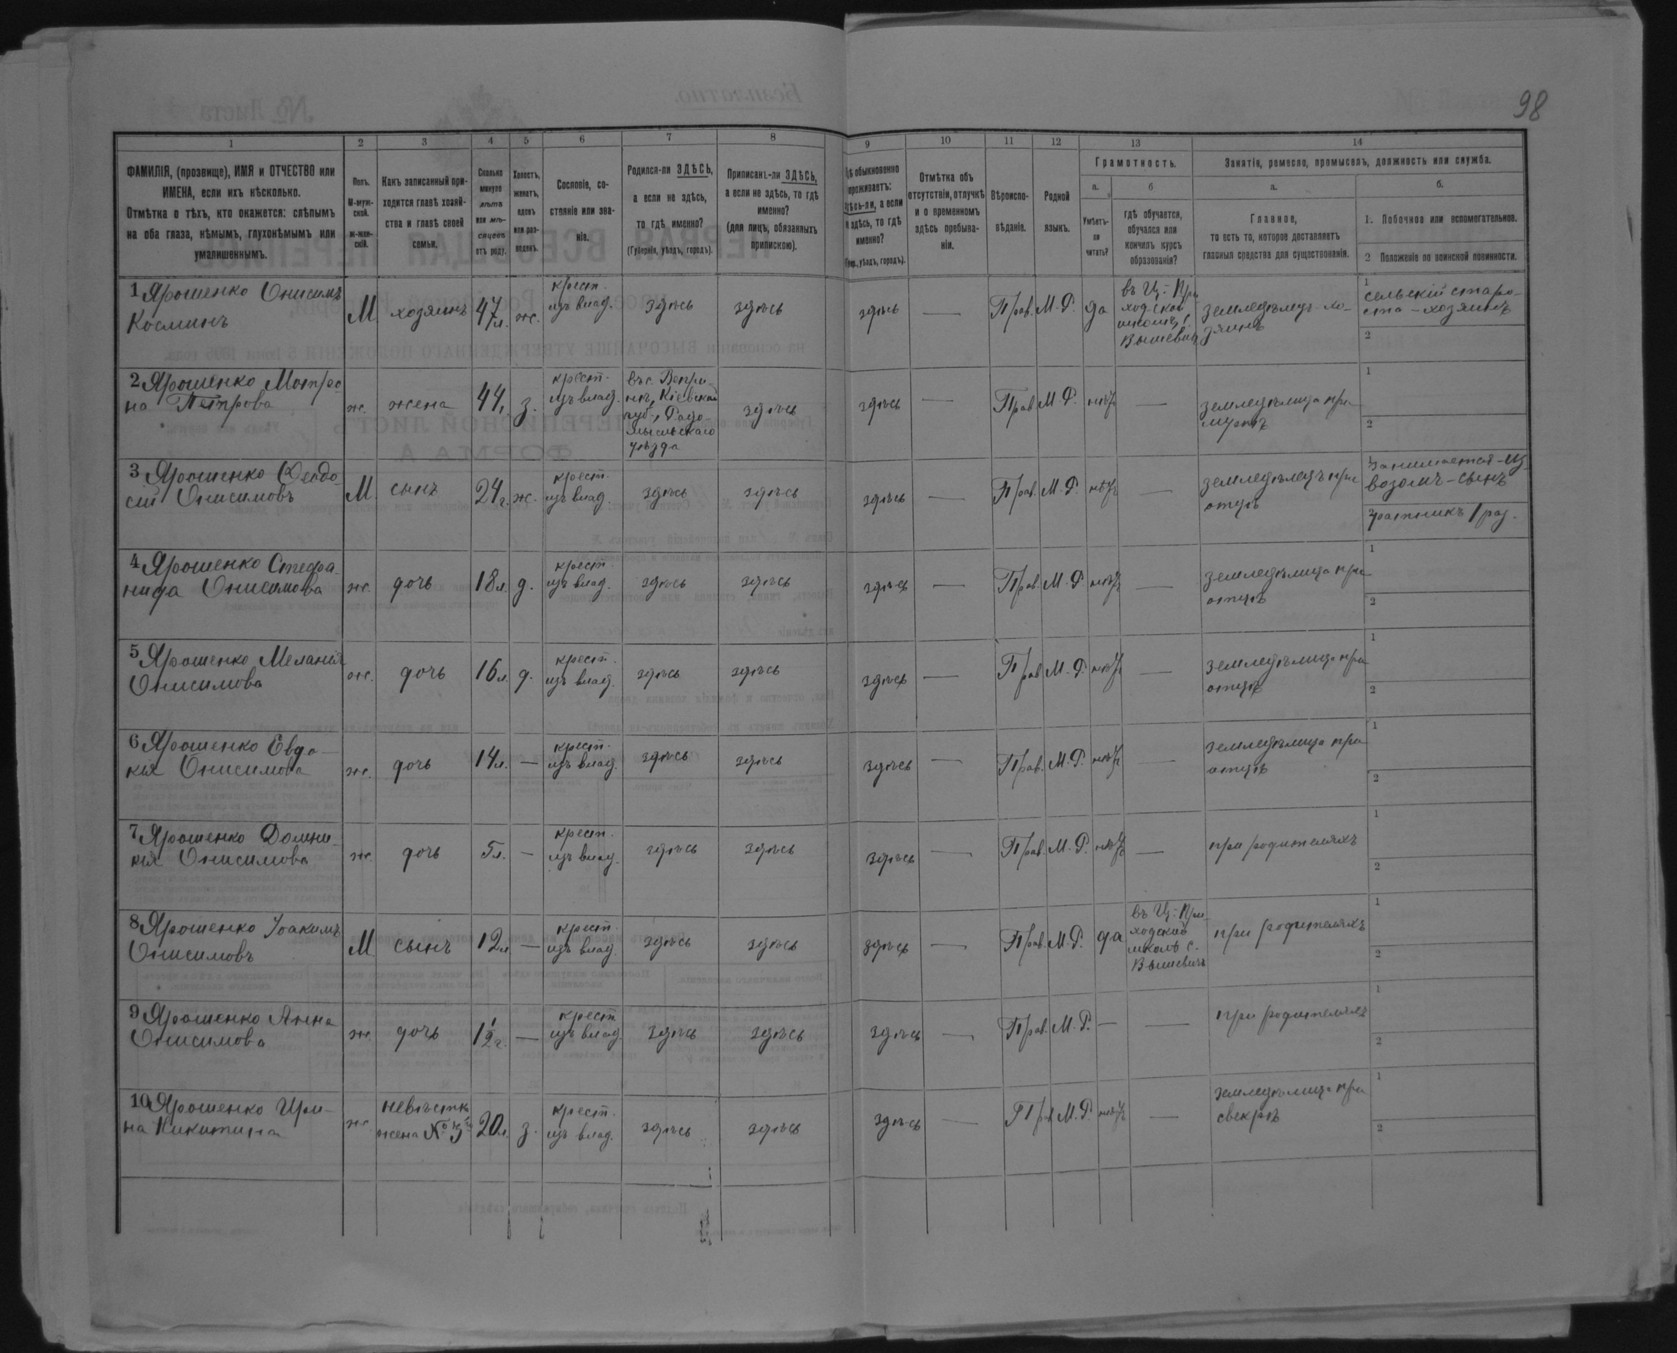 98
1 2 3 4 5 6 7 8 9 10 11 12 13 14
ФАМИЛІЯ, (прозвище), ИМЯ и ОТЧЕСТВО или
ИМЕНА, если ихъ нѣсколько.
Отмѣтка о тѣхъ, кто окажется: слѣпымъ
на оба глаза, нѣмымъ, глухонѣмымъ или
умалишеннымъ.
Полъ.
М-муж-
ской.
ж-жен-
скій.
Какъ записанный при-
ходится главѣ хозяй-
ства и главѣ своей
семьи.
Сколько
минуло
лѣтъ
или мѣ-
сяцевъ
отъ роду.
Холостъ,
женатъ,
вдовъ
или раз-
веденъ.
Сословіе, со-
стояніе или зва-
ніе.
Родился-ли ЗДѢСЬ,
а если не здѣсь,
то гдѣ именно?
(Губернія, уѣздъ, городъ).
Приписанъ-ли ЗДѢСЬ,
а если не здѣсь, то гдѣ
именно?
(для лицъ, обязанныхъ
припискою).
Гдѣ обыкновенно
проживаетъ:
здѣсь-ли, а если
не здѣсь, то гдѣ
именно?
(Губ., уѣздъ, городъ).
Отмѣтка объ
отсутствіи, отлучкѣ
и о временномъ
здѣсь пребыва-
ніи.
Вѣроиспо-
вѣданіе.
Родной
языкъ.
Грамотность.
а. б
Умѣетъ-
ли
читать?
гдѣ обучается,
обучался или
кончилъ курсъ
образованія?
Занятіе, ремесло, промыселъ, должность или служба.
а. б.
Главное,
то есть то, которое доставляетъ
главныя средства для существованія.
1. Побочное или вспомогательное.
2 Положеніе по воинской повинности.
1 Ярошенко Онисимъ
Косминъ
М хозяинъ 47 л. ж.
крест.
изъ влад.
здѣсь здѣсь здѣсь — Прав. М. Р. да
въ Ц.-При
ходской
школѣ с.
Вышевичи
земледѣлецъ-хо-
зяинъ
1 сельскій старо-
ста - хозяинъ
2
2 Ярошенко Матре
на Петрова
ж. жена 44 з.
крест.
изъ влад.
въ с. Вепри
нѣ, Кіевской
губ., Радо-
мысльскаго
уѣзда
здѣсь здѣсь — Прав М. Р. нѣтъ —
земледѣлица при
мужѣ
1
2
3 Ярошенко Феодо
сій Онисимовъ
М сынъ 24 г. ж.
крест.
изъ влад.
здѣсь здѣсь здѣсь — Прав. М. Р. нѣтъ —
земледѣлецъ при
отцѣ
занимается-из
возомъ-сынъ
ратникъ 1 раз.
4 Ярошенко Стефа
нида Онисимова
ж. дочь 18 л. д.
крест
изъ влад.
здѣсь здѣсь здѣсь — Прав. М. Р. нѣтъ —
земледѣлица при
отцѣ
1
2
5 Ярошенко Меланія
Онисимова
ж. дочь 16 л. д.
крест.
изъ влад.
здѣсь здѣсь здѣсь — Прав. М. Р. нѣтъ —
земледѣлица при
отцѣ
1
2
6 Ярошенко Евдо-
кія Онисимова
ж. дочь 14 л. —
крест.
изъ влад.
здѣсь здѣсь здѣсь — Прав. М. Р. нѣтъ —
земледѣлица при
отцѣ
1
2
7 Ярошенко Домни-
кія Онисимова
ж. дочь 5 л. —
крест.
изъ влад.
здѣсь здѣсь здѣсь — Прав. М. Р. нѣтъ —
при родителяхъ
1
2
8 Ярошенко Іоакимъ
Онисимовъ
М сынъ 12 л —
крест.
изъ влад
здѣсь здѣсь здѣсь — Прав. М. Р. да
въ Ц.-При-
ходской
школѣ с.
Вышевичи
при родителяхъ
1
2
9 Ярошенко Анна
Онисимова
ж. дочь 1½ г. —
крест
изъ влад.
здѣсь здѣсь здѣсь — Прав. М. Р. — —
при родителяхъ
1
2
10 Ярошенко Ири-
на Никитина
ж.
невѣстка
жена № 3
20 л. з.
крест.
изъ влад.
здѣсь здѣсь здѣсь — Прав М. Р. нѣтъ —
земледѣлица при
свекрѣ
1
2